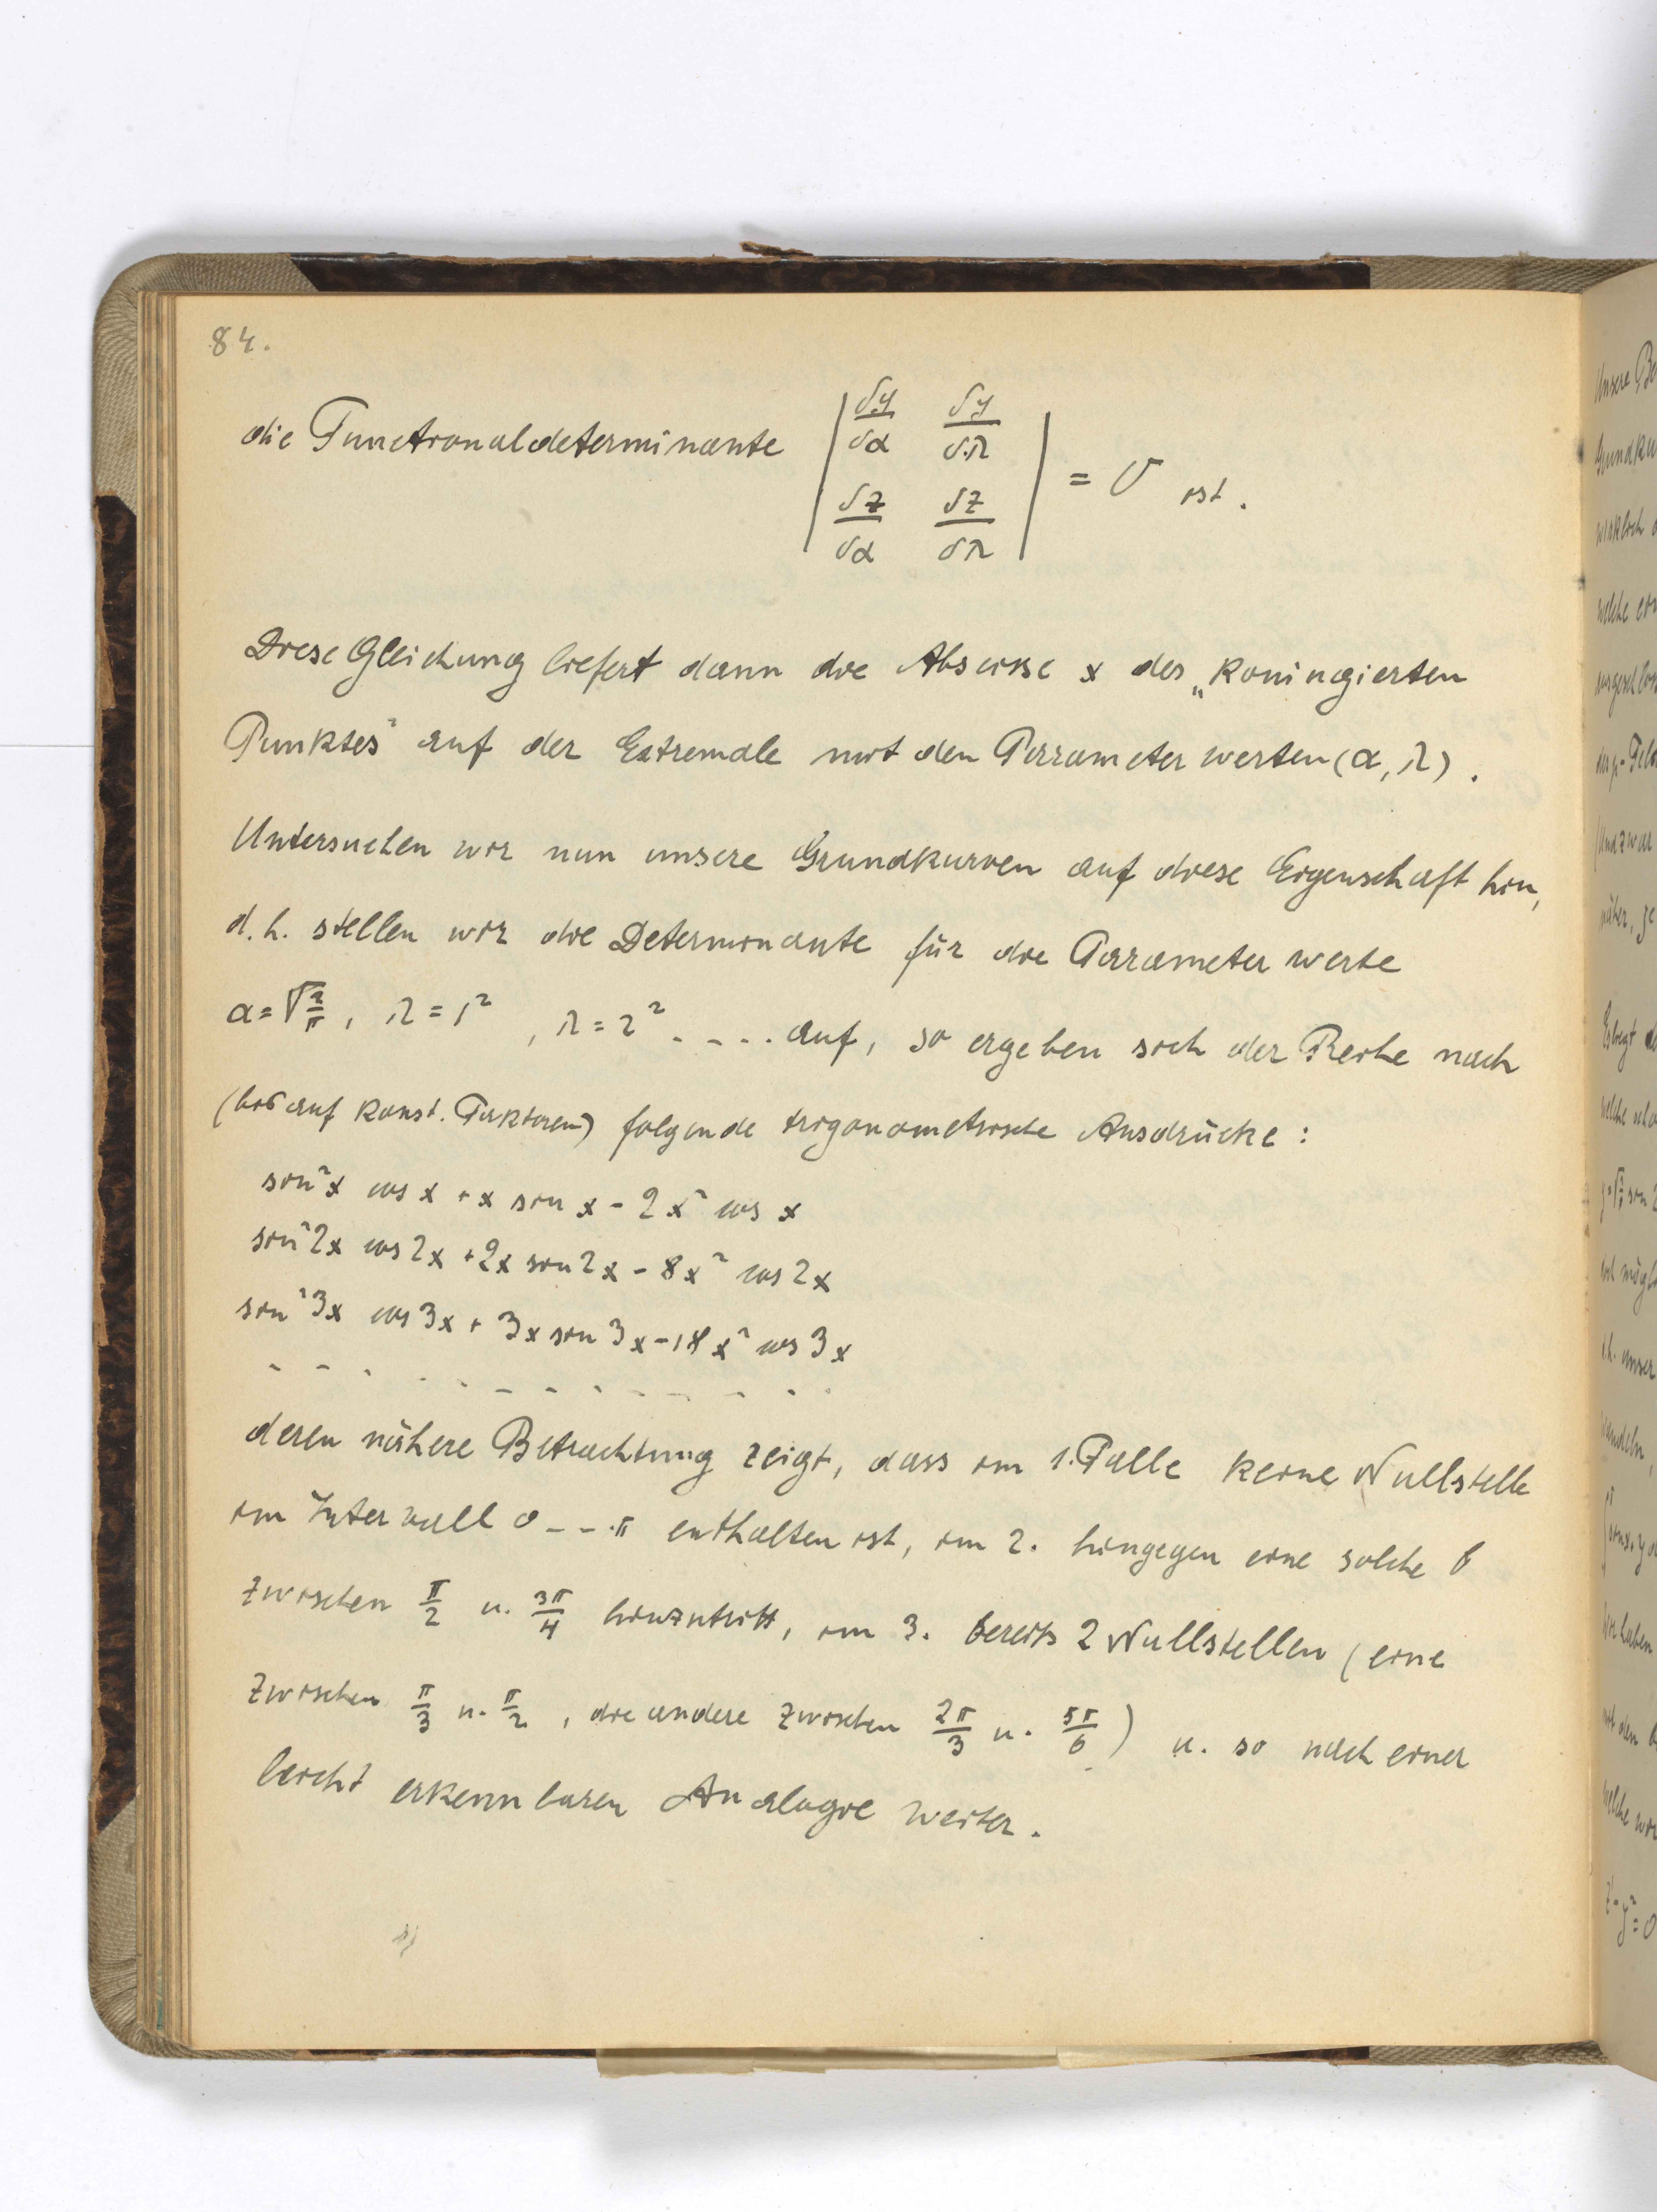 84.
die Functionaldeterminante | δy/δα δy/δλ | = 0 ist.
| δz/δα δz/δλ |
Diese Gleichung liefert dann die Abscisse x des „konjugierten
Punktes" auf der Extremale mit den Parameterwerten (α, λ).
Untersuchen wir nun unsere Grundkurven auf diese Eigenschaft hin,
d.h. stellen wir die Determinante für die Parameterwerte
α = √2/π, λ = 1², λ = 2² ..... auf, so ergeben sich der Reihe nach
(bis auf konst. Faktoren) folgende trigonometrische Ausdrücke:
sin²x cos x + x sin x - 2x² cos x
sin²2x cos 2x + 2x sin 2x - 8x² cos 2x
sin²3x cos 3x + 3x sin 3x - 18x² cos 3x
- - - - - - - - - - - - -
deren nähere Betrachtung zeigt, dass im 1. Falle keine Nullstelle
im Intervall 0 --- π enthalten ist, im 2. hingegen eine solche
zwischen π/2 u. 3π/4 hinzutritt, im 3. bereits 2 Nullstellen (eine
zwischen π/3 u. π/2, die andere zwischen 2π/3 u. 5π/6) u. so nach einer
leicht erkennbaren Analogie weiter.
Unsere
Grundku
wirklich
welche
Feld
(und zwar
näher,
welche
d.h. unser
wandeln,
Wir haben
mit den
welche wir
z'-y²=0